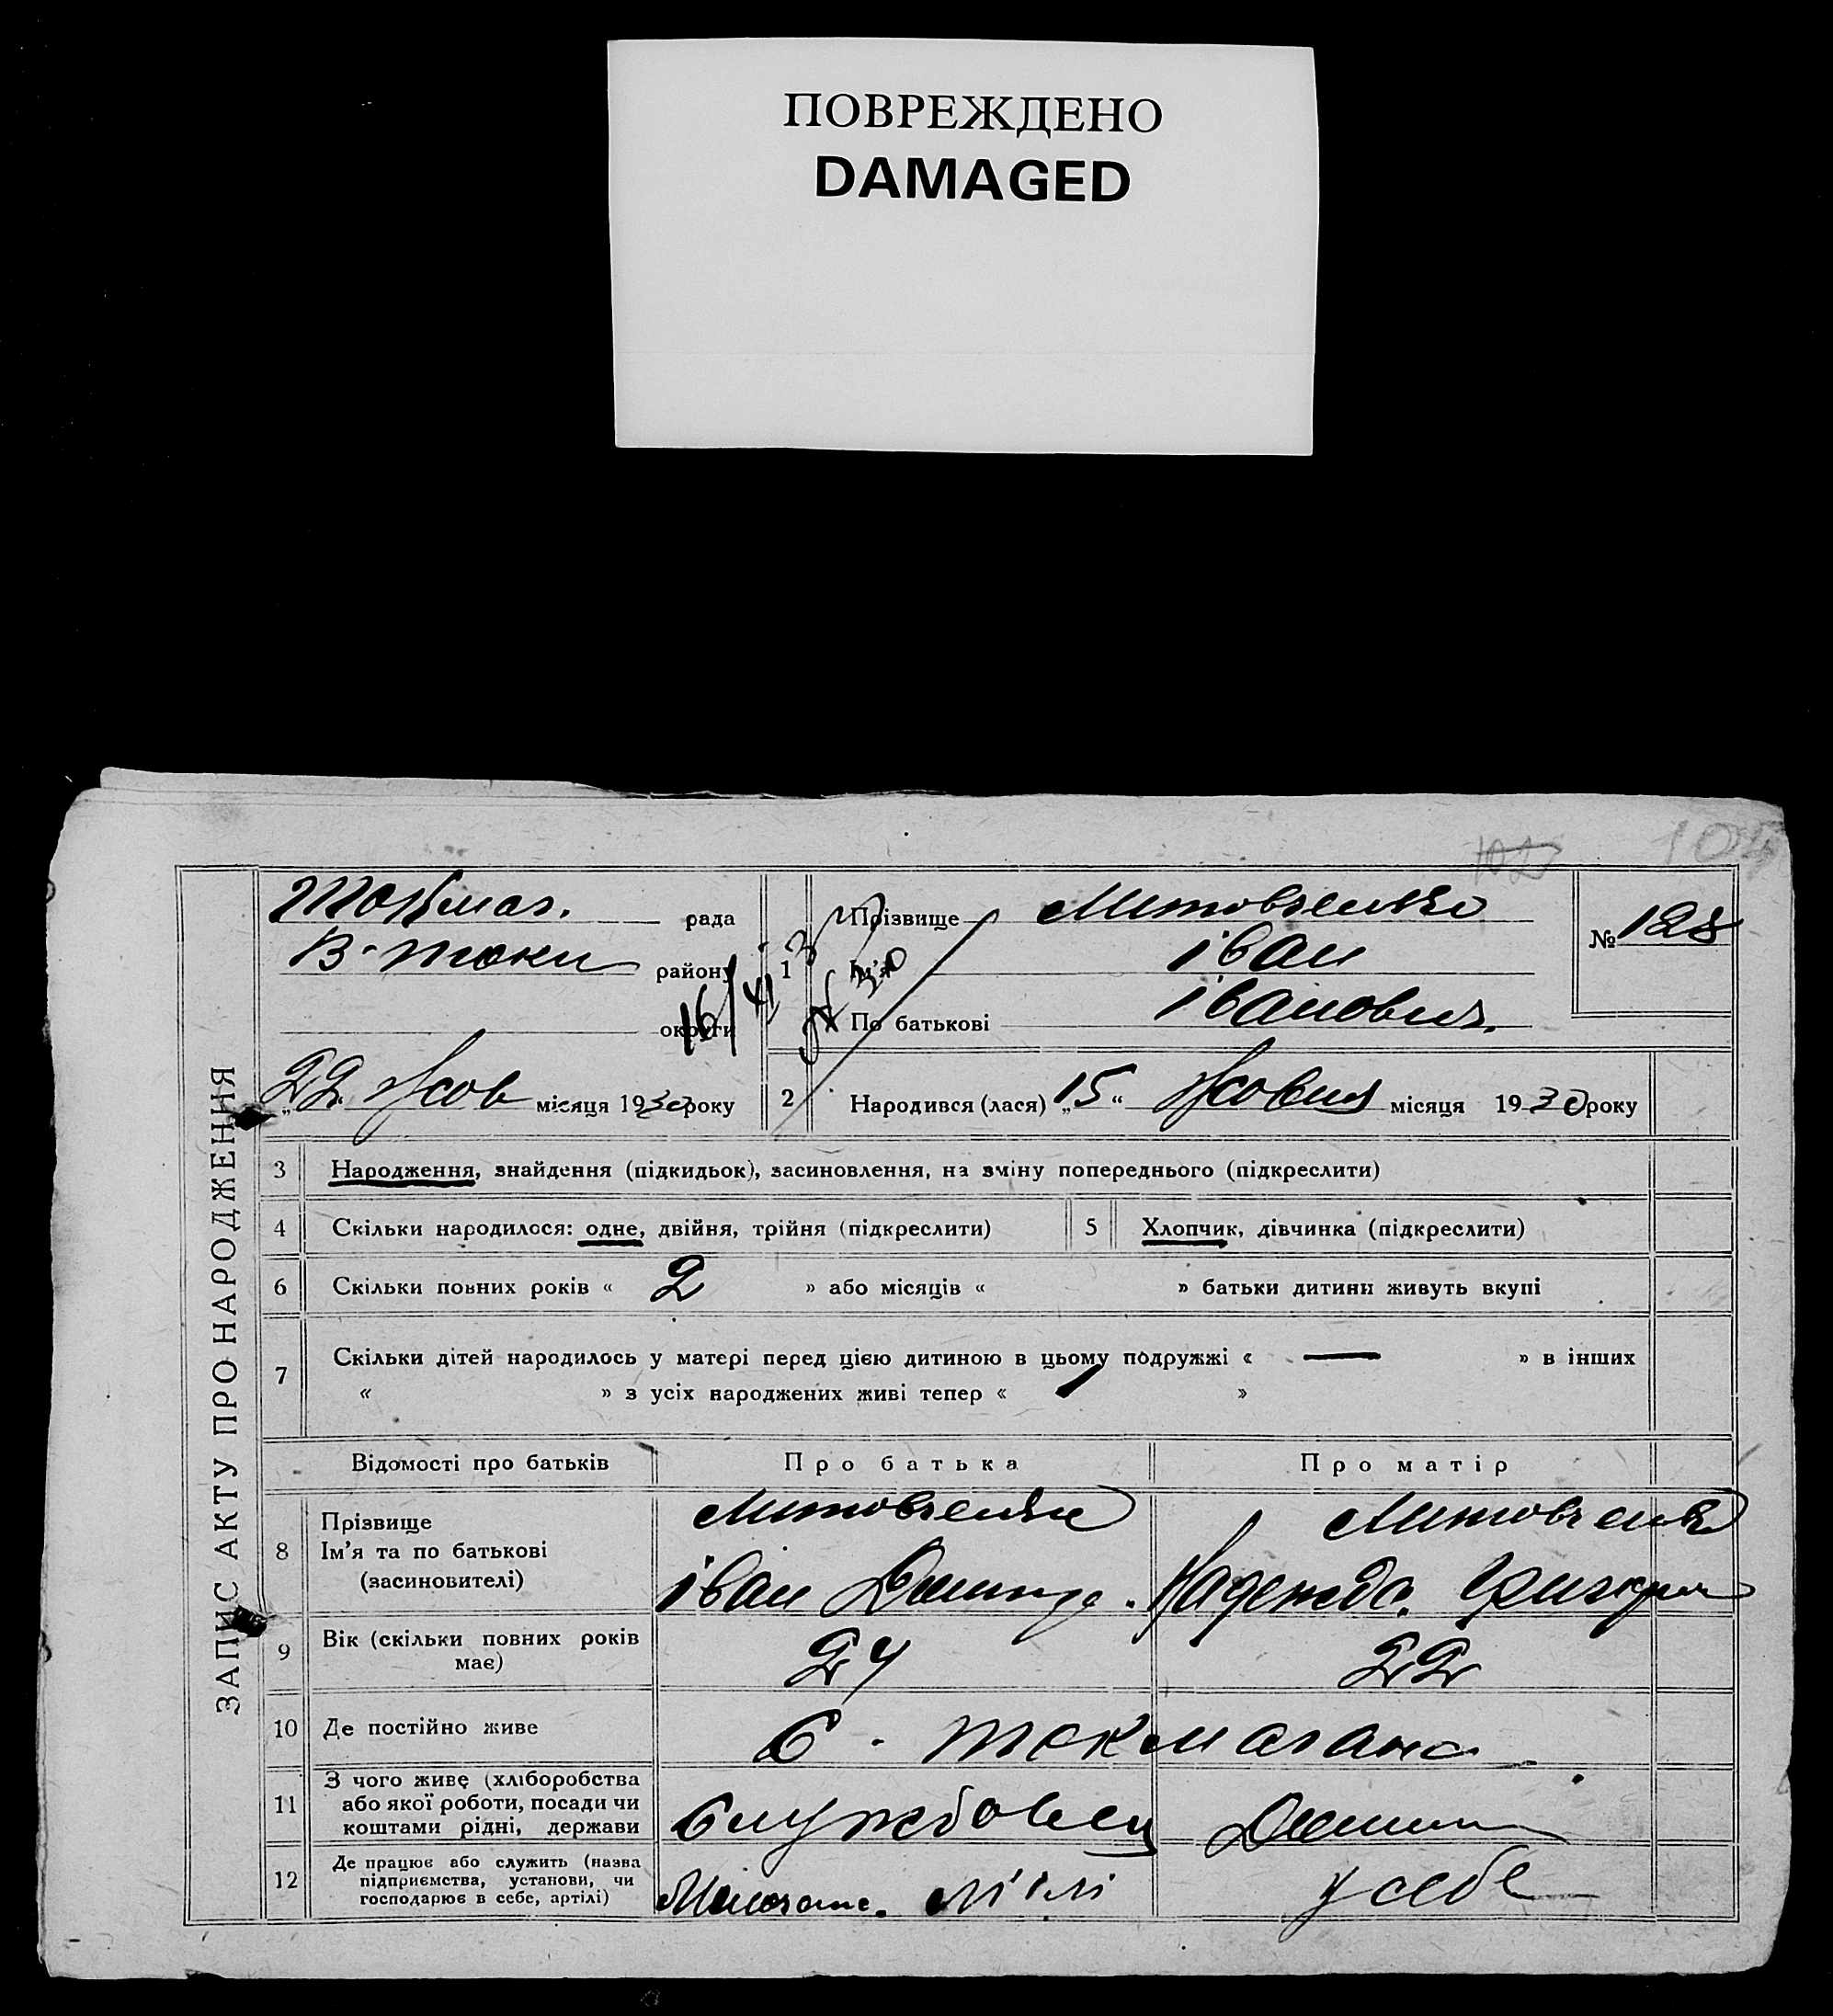 ПОВРЕЖДЕНО
DAMAGED
102 104
ЗАПИС АКТУ ПРО НАРОДЖЕННЯ
Токмаг. рада
В-токм району
округи
16/XI 30
„22 Жов місяця 1930 року
1 Прізвище Митовченко
Ім'я Іван
По батькові Іванович.
№ 128
2 Народився (лася) „15“ Жовтня місяця 1930 року
3 Народження, знайдення (підкидьок), засиновлення, на зміну попереднього (підкреслити)
4 Скільки народилося: одне, двійня, трійня (підкреслити) 5 Хлопчик, дівчинка (підкреслити)
6 Скільки повних років « 2 » або місяців « » батьки дитини живуть вкупі
7 Скільки дітей народилось у матері перед цією дитиною в цьому подружжі « — » в інших
« » з усіх народжених живі тепер « 1 »
Відомості про батьків Про батька Про матір
8 Прізвище
Ім'я та по батькові
(засиновителі)
Митовченко Митовченко
Іван Надежда Григор
9 Вік (скільки повних років має) 24 22
10 Де постійно живе С.
11 З чого живе (хліборобства або якої роботи, посади чи коштами рідні, держави Службовец
12 Де працює або служить (назва підприємства, установи, чи господарює в себе, артілі) у себе